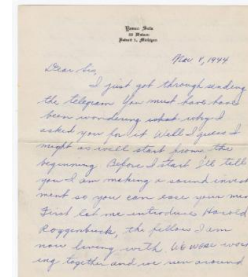 Nov 8, 1944
Dear Sir,
I just got through sending
the telegram you must have have
been wondering what why I
asked you for it Well I guess I
might as well start from the
beginning Before I start I'll tell
you I am making a sound invest
ment so you can ease your min
First let me introduce Harold
Roggenbuck, the fellow I am
now living with We wear work
ing together and we run around